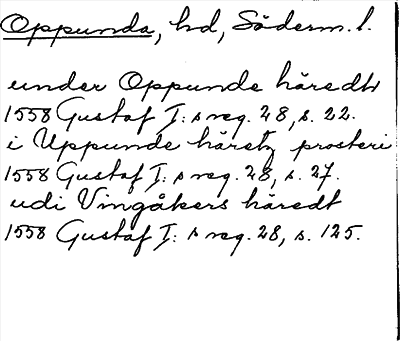 Oppunda, hd, Söderm. l.
under Oppunde häredtt
1558 Gustaf I: s reg. 28, s. 22.
i Uppunde häretz prosteri
1558 Gustaf I: s reg. 28, s. 27.
udi Vingåkers häredt
1558 Gustaf I: s reg. 28, s. 125.